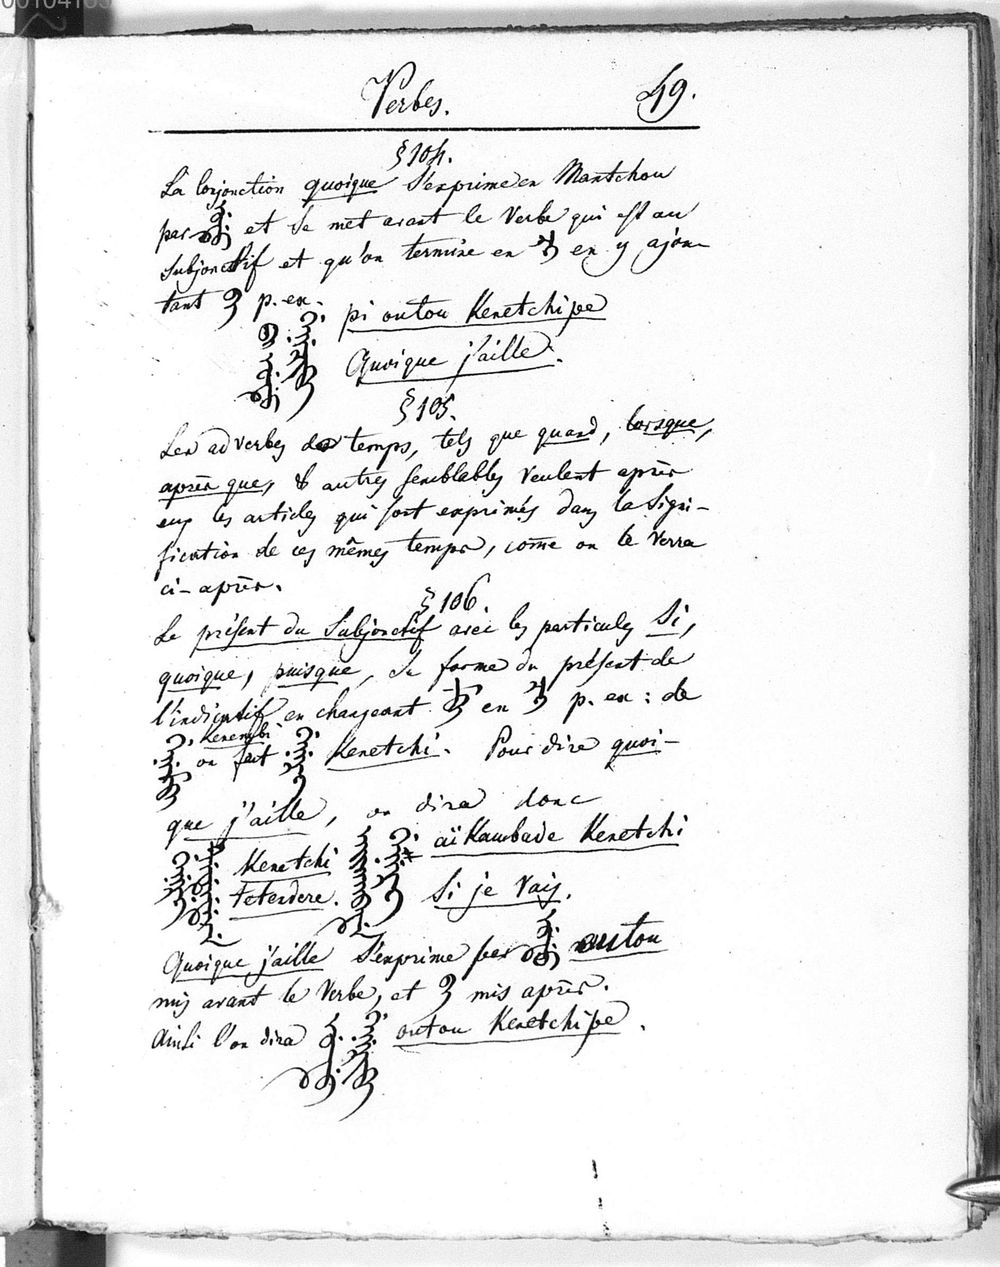 Verbes. 49.
§ 104.
La Conjonction quoique s'exprime en Mantchou
par et se met avant le Verbe qui est au
subjonctif et qu'on termine en en y ajou-
tant p. ex.
pi outou Kenetchipe
Quoique j'aille.
§ 105.
Les adverbes de temps, tels que quand, lorsque,
après que, & autres semblables veulent après
eux les articles qui sont exprimés dans la signi-
fication de ces mêmes temps, come on le verra
ci-après.
§ 106.
Le présent du Subjonctif avec les particules Si,
quoique, puisque, se forme du présent de
l'indicatif en changeant en p. ex: de
Kenembi on fait Kenetchi. Pour dire quoi-
que j'aille, on dira donc
Kenetchi
teterdere.
aïkambade Kenetchi
Si je vais.
Quoique j'aille s'exprime par outou
mis avant le Verbe, et mis après.
Ainsi l'on dira outou Kenetchipe.